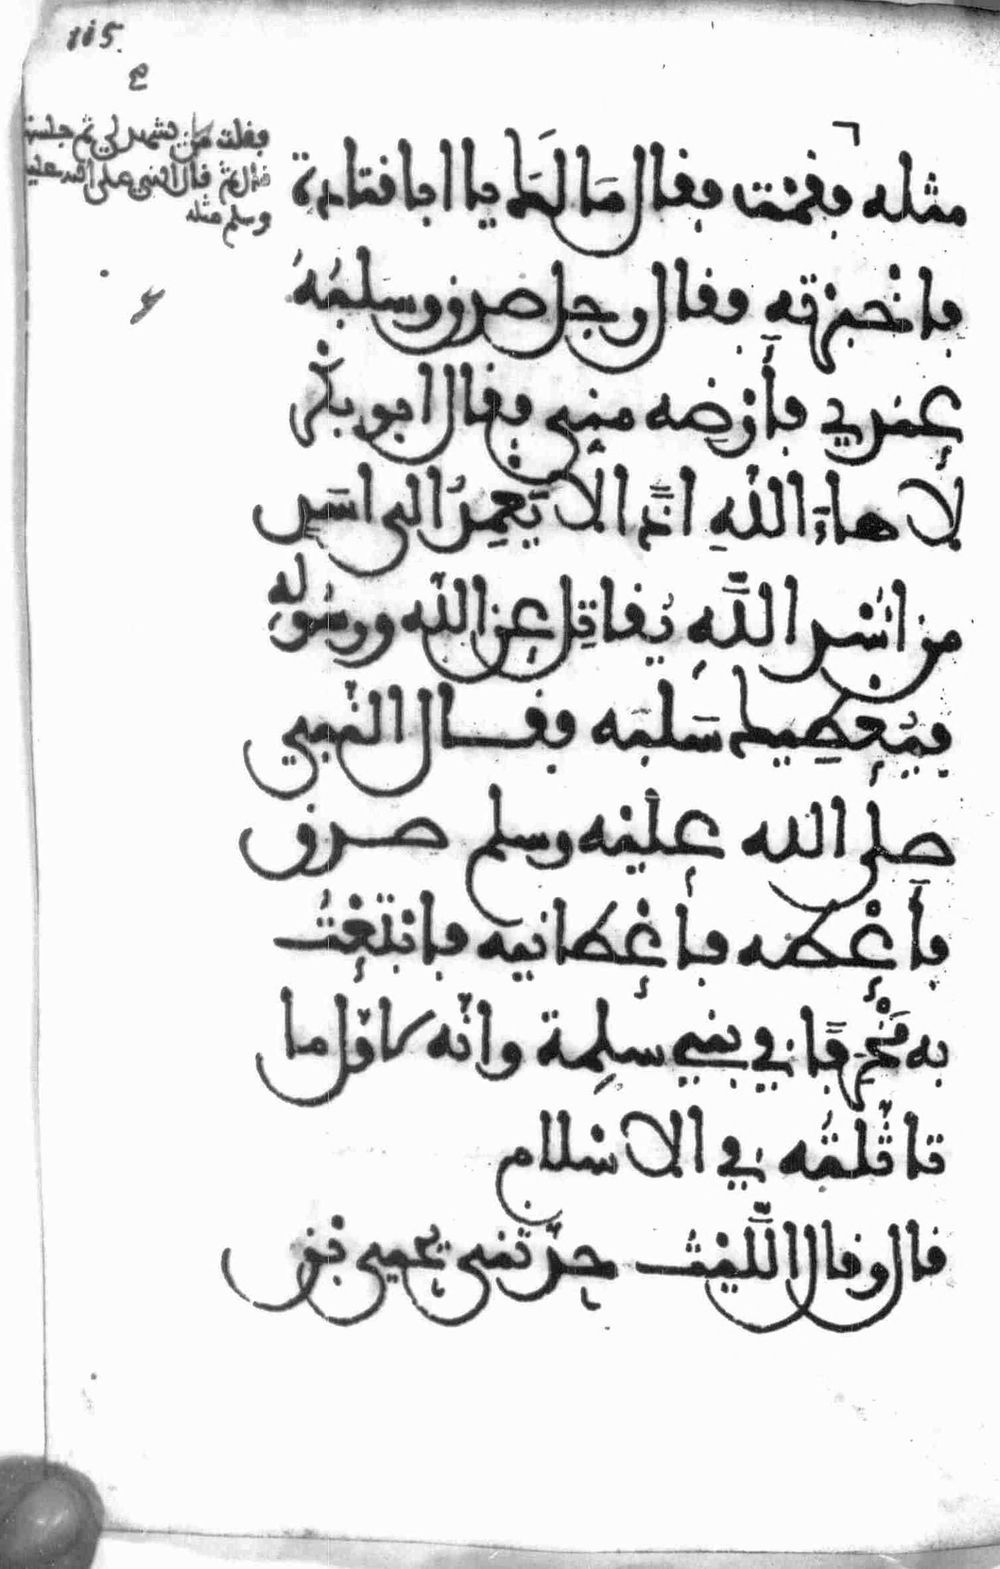 115
فقلت من يشهد لي ثم جلست
قال ثم قال النبي صلى الله عليه
وسلم مثله
مثله فقمت فقال مَا لَك يا ابا قتادة
فاخْبرْته فقال رجل صدق وسلبُهُ
عِندي فأرْضِه مِنِّي فقال ابو بكْر
لا هاءَ اللهِ اذًا لا يَعمِدُ الى اسَدٍ
من اُسْد اللَّهِ يُقاتِل عن اللّه ورسُولِه
فيُعطِيك سَلبَه فقال النّبي
صلى الله عليْه وسلم صدق
فأَعْطه فأعْطانيه فابْتَعْتُ
به مَخْرَفًا في بني سلِمة وانّه لاوّل ما
تاثّلتُه في الاسْلام
قال وقال اللَّيْث حدّثني يحيى بْن